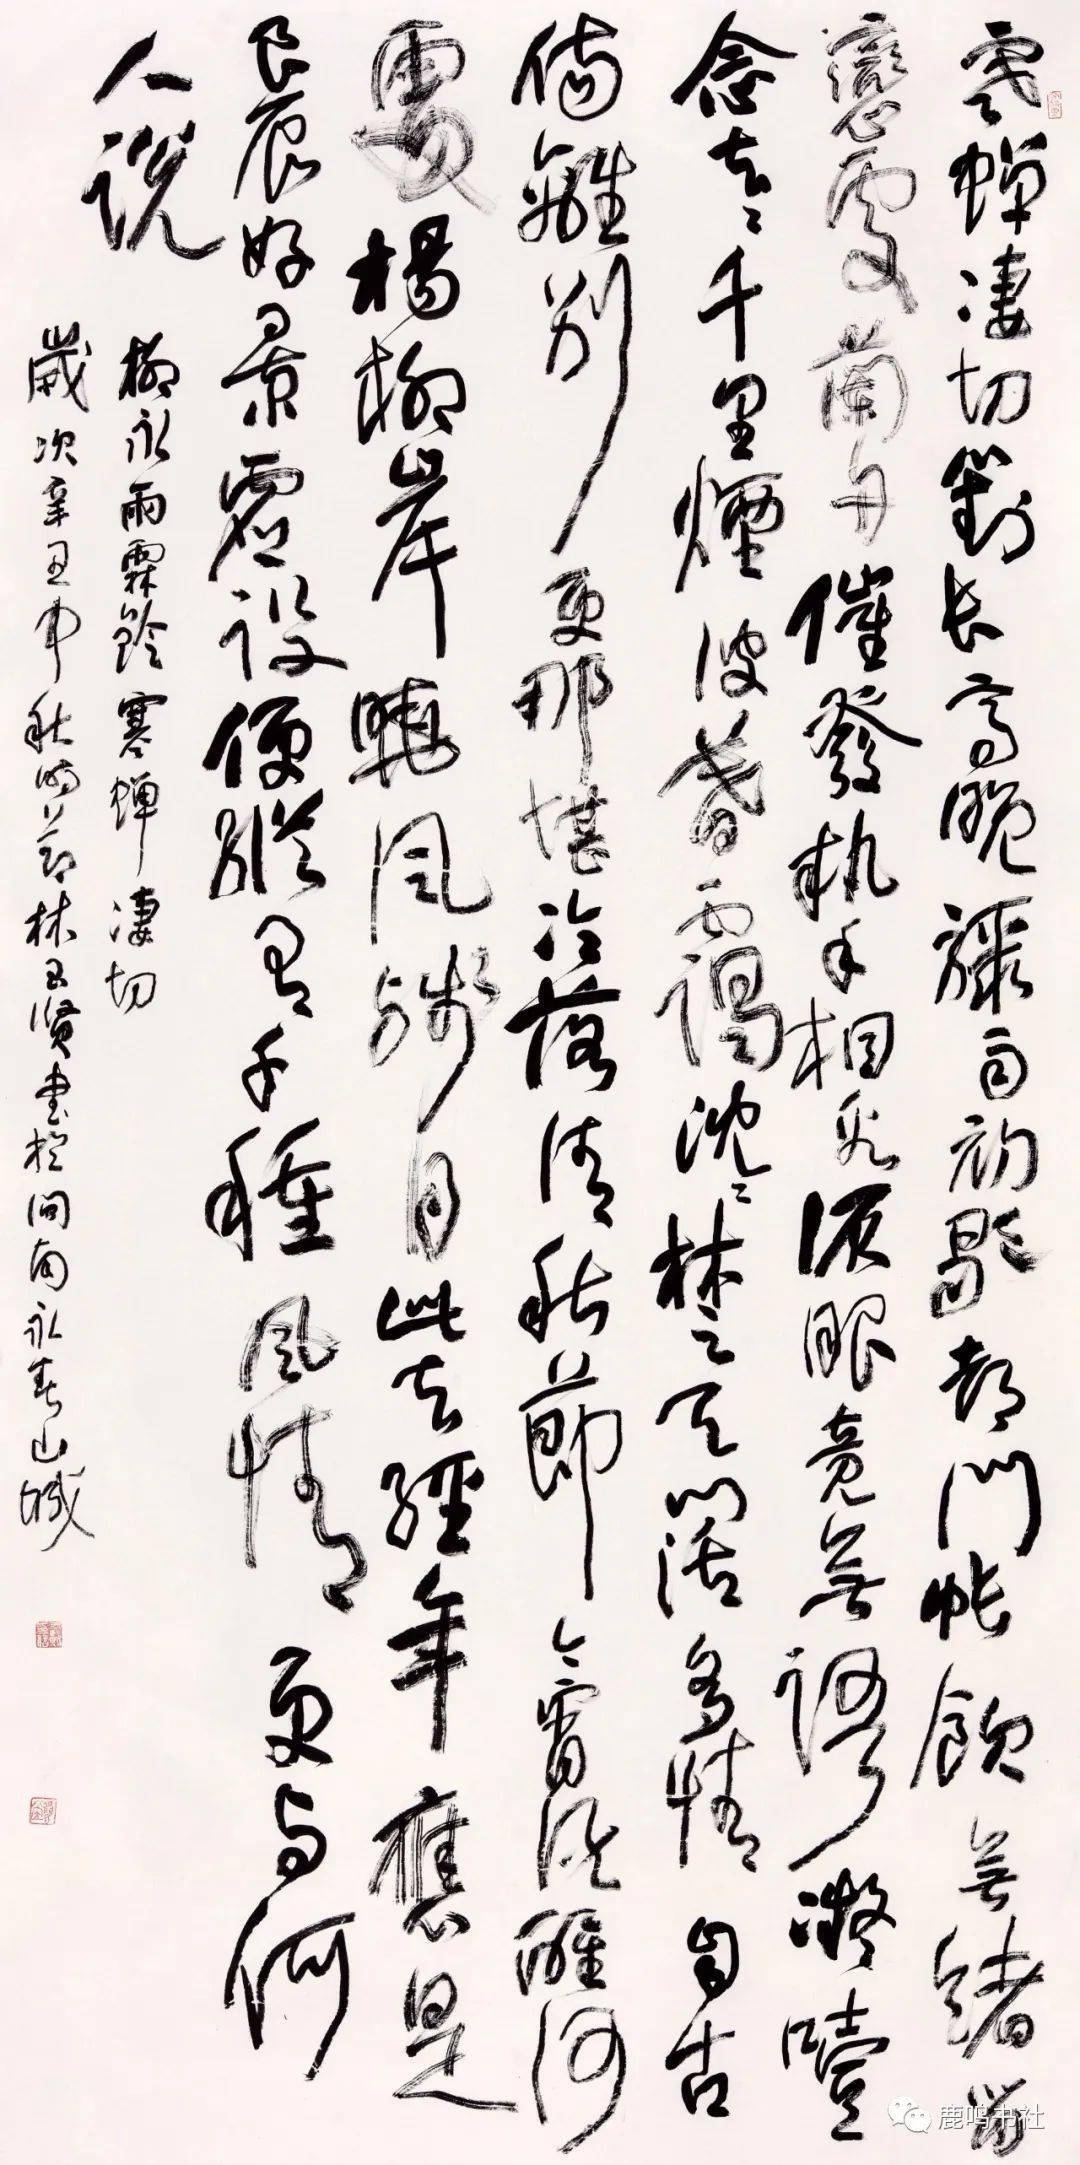 寒蟬凄切對长亭晚驟雨初歇都門帳飲無緒留
戀處蘭舟催發執手相看淚眼竟無語凝噎
念去々千里煙波暮靄沈々楚天闊多情自古
傷離别更那堪冷落清秋節今宵酒醒何
處楊柳岸曉風殘月此去經年應是
良辰好景虚设便縱有千種風情更与何
人说
柳永雨霖鈴寒蟬凄切
歲次辛丑中秋時节林玉贤書於闽南永春山城
鹿鸣书社